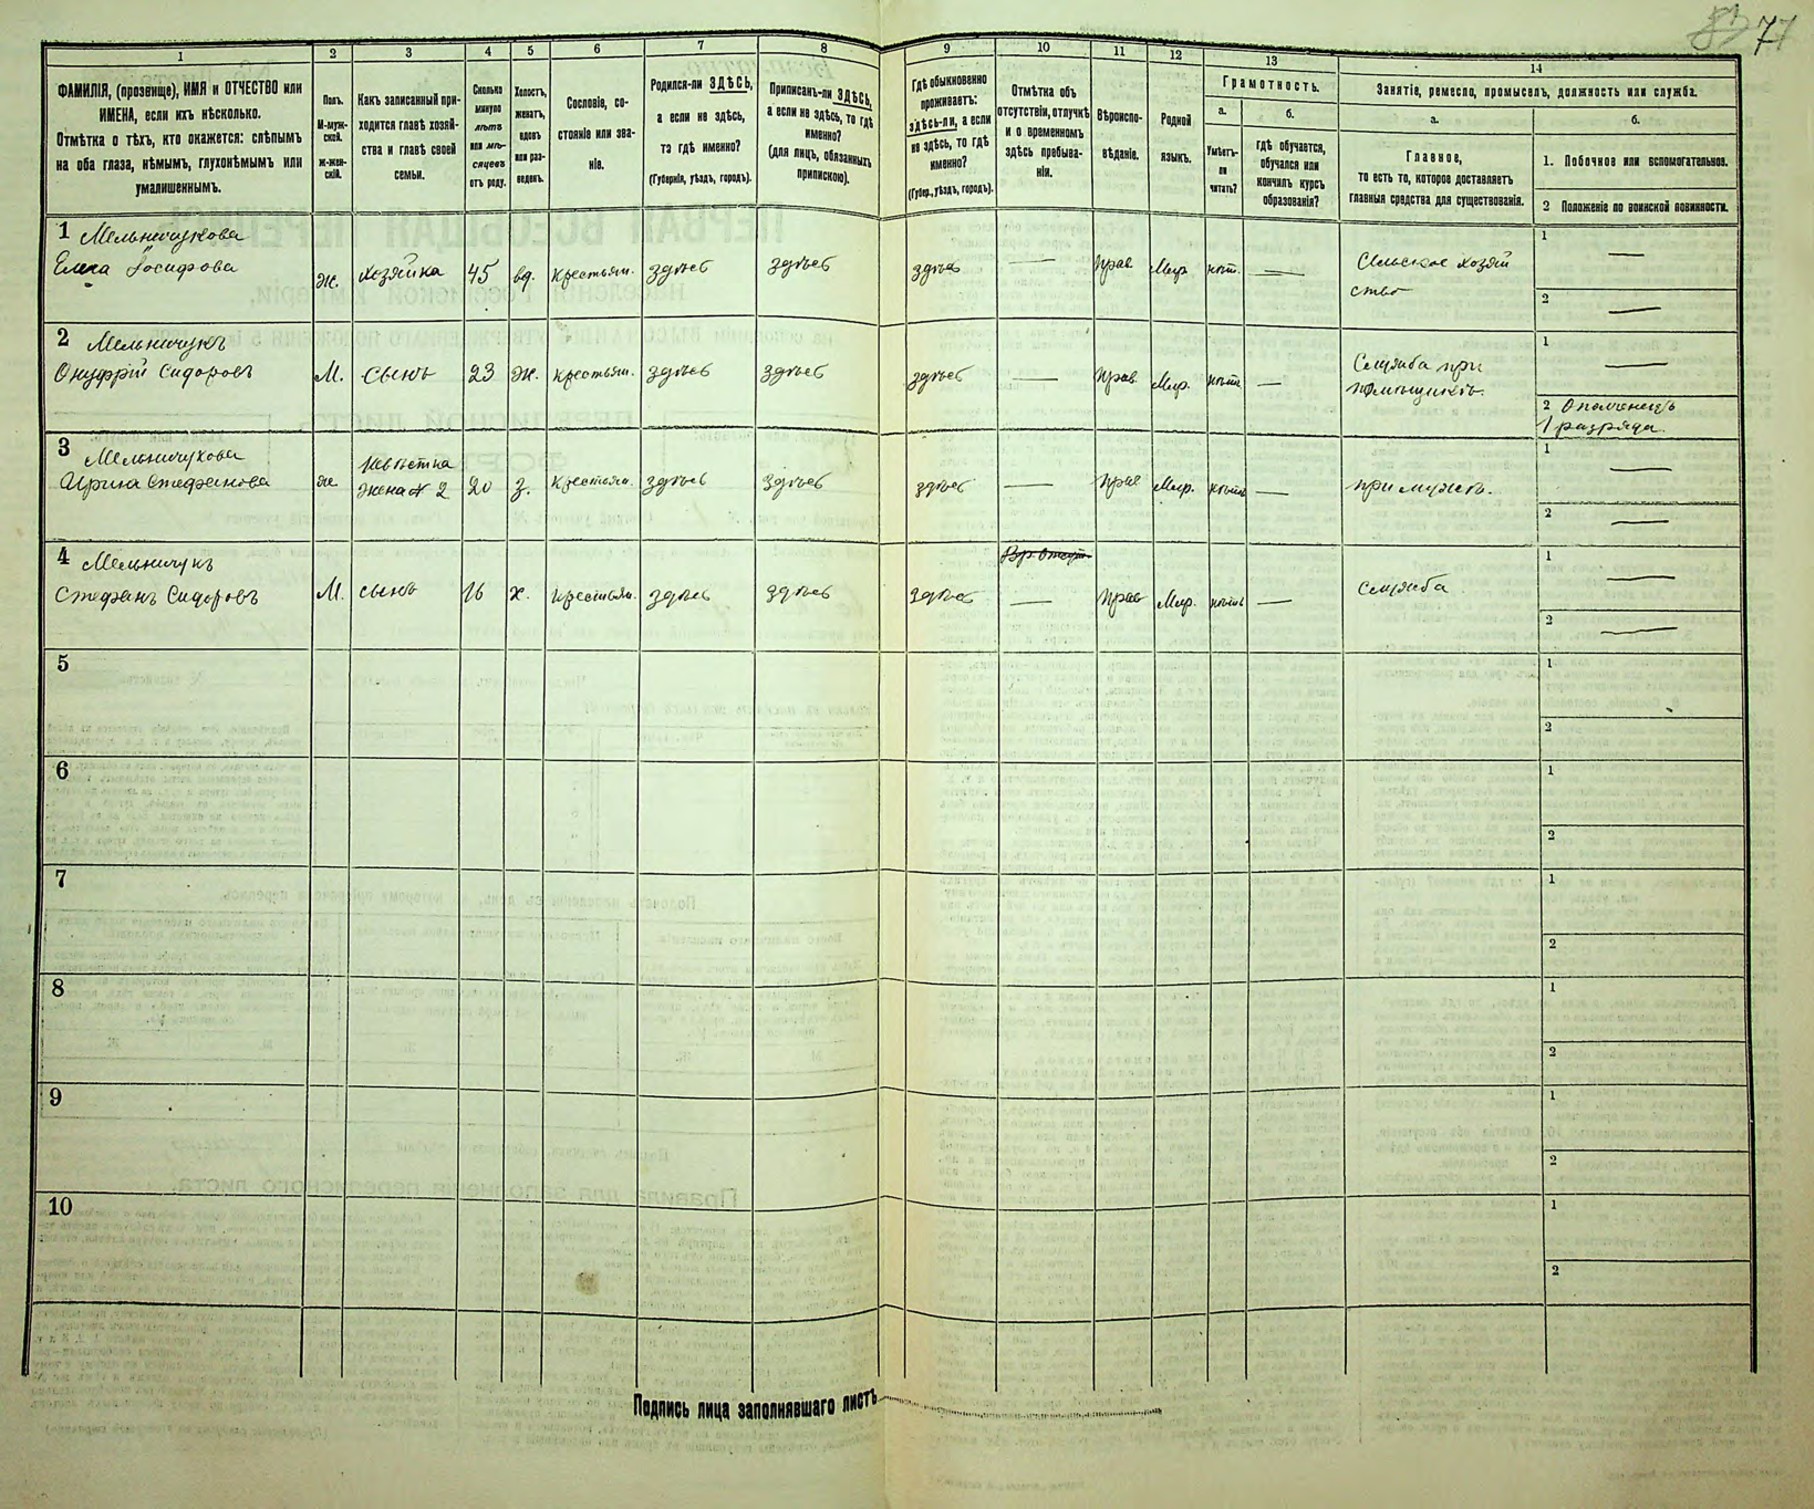 77
1
2
3
4
5
6
7
8
9
10
11
12
13
14
ФАМИЛІЯ, (прозвище), ИМЯ и ОТЧЕСТВО или
ИМЕНА, если ихъ нѣсколько.
Отмѣтка о тѣхъ, кто окажется: слѣпымъ
на оба глаза, нѣмымъ, глухонѣмымъ или
умалишеннымъ.
Полъ.
М-муж-
ской.
ж-жен-
скій.
Какъ записанный при-
ходится главѣ хозяй-
ства и главѣ своей
семьи.
Сколько
минуло
лѣтъ
или мѣ-
сяцевъ
отъ роду.
Холостъ,
женатъ,
вдовъ
или раз-
веденъ.
Сословіе, со-
стояніе или зва-
ніе.
Родился-ли ЗДѢСЬ,
а если не здѣсь,
то гдѣ именно?
(Губернія, уѣздъ, городъ).
Приписанъ-ли ЗДѢСЬ,
а если не здѣсь, то гдѣ
именно?
(для лицъ, обязанныхъ
припискою).
Гдѣ обыкновенно
проживаетъ:
здѣсь-ли, а если
не здѣсь, то гдѣ
именно?
(Губер., уѣздъ, городъ).
Отмѣтка объ
отсутствіи, отлучкѣ
и о временномъ
здѣсь пребыва-
ніи.
Вѣроиспо-
вѣданіе.
Родной
языкъ.
Грамотность.
а.
Умѣетъ-
ли
читать?
б.
Гдѣ обучается,
обучался или
кончилъ курсъ
образованія?
Занятіе, ремесло, промыселъ, должность или служба.
а.
Главное,
то есть то, которое доставляетъ
главныя средства для существованія.
б.
1. Побочное или вспомогательное.
2 Положеніе по воинской повинности.
1 Мельничукова
Елена Іосифова
ж. хозяйка 45 вд. крестьян. здѣсь здѣсь здѣсь — прав. Мир. нѣт. —
Сельское хозяй
ство
1 —
2 —
2 Мельничукъ
Онуфрій Сидоровъ
М. сынъ 23 ж. крестьян. здѣсь здѣсь здѣсь — прав. Мир. нѣтъ —
Служба при
помѣщикѣ.
1 —
2 Ополченецъ
1 разряда
3 Мельничукова
Ирина Стефанова
ж
Невѣстка
жена № 2
20 з. крестьян. здѣсь здѣсь здѣсь — прав Мир. нѣтъ —
при мужѣ.
1 —
2 —
4 Мельничукъ
Стефанъ Сидоровъ
М. сынъ 16 х. крестьян. здѣсь здѣсь здѣсь
Вр. отсут.
— прав Мир. нѣтъ —
Служба
1 —
2 —
5
1
2
6
1
2
7
1
2
8
1
2
9
1
2
10
1
2
Подпись лица заполнявшаго листъ